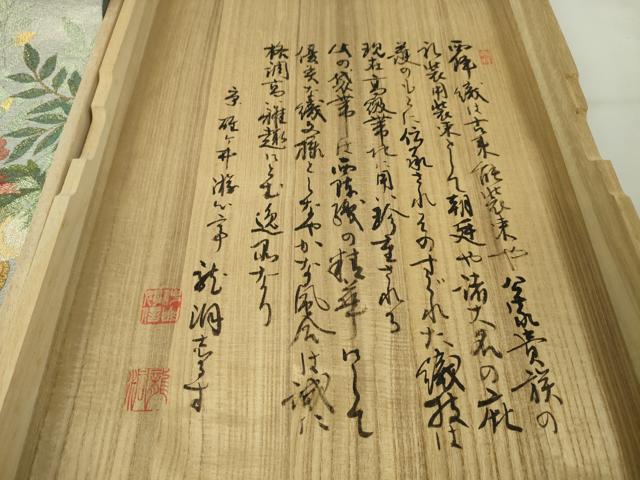 西陣織は古来能装束や公家貴族の
礼装用装束として朝廷や諸大名の庇
護のもとに伝承されそのすぐれた織技は
現在高級帯地に用い珍重される
この袋帯は西陣織の精華にして
優美な織文様としなやかな風合は誠に
格調高雅趣にとむ逸品なり
京 碓ヶ井 游心亭 龍洞